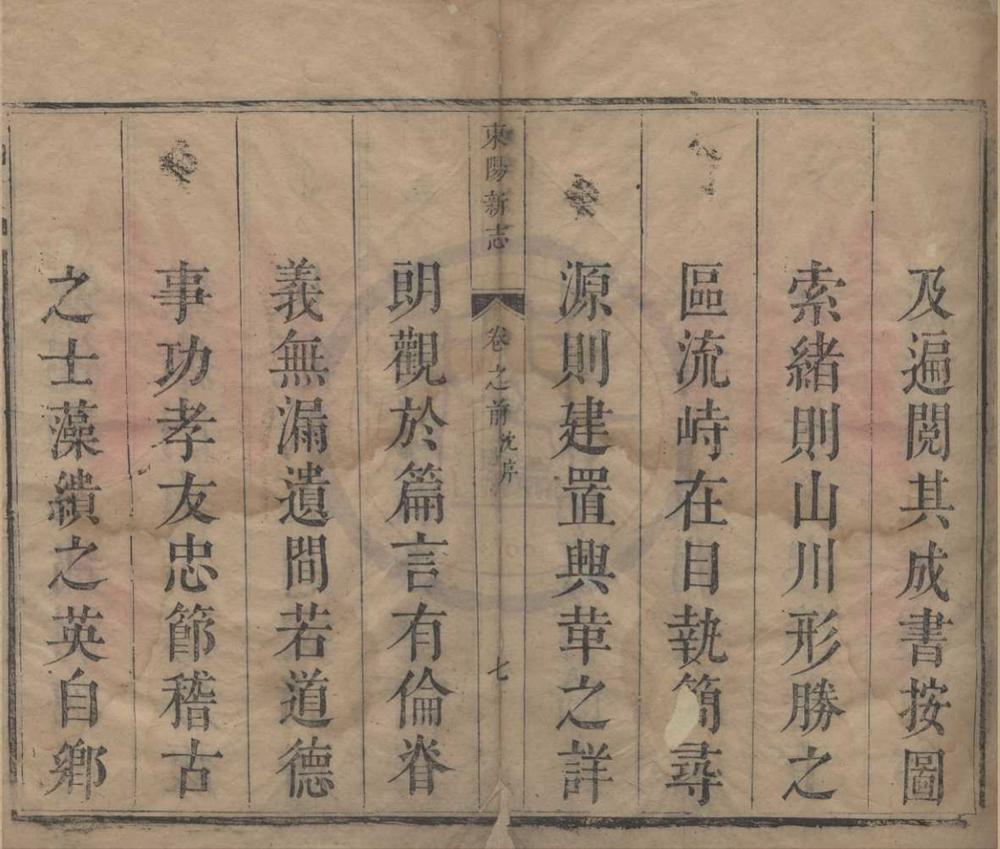 及遍閱其成書按圖
索緒則山川形勝之
區流峙在目執簡尋
源則建置興革之詳
東陽新志 卷之前 沈序 七
朗觀於篇言有倫脊
義無漏遺間若道德
事功孝友忠節稽古
之士藻繢之英自鄉